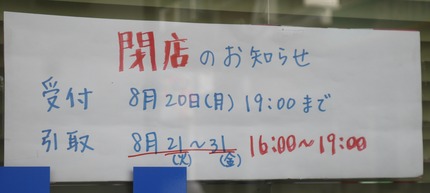 閉店のお知らせ
受付 8月20日(月) 19:00まで
引取 8月21～31 16:00～19:00
(火) (金)